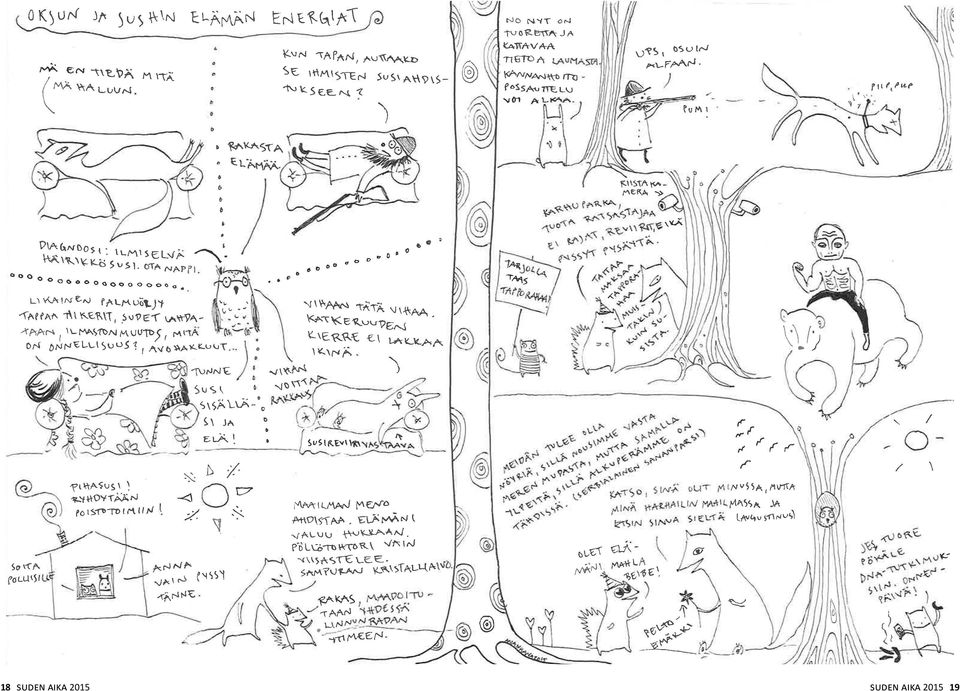 OKSUN JA SUSHIN ELÄMÄN ENERGIAT
MÄ EN TIEDÄ MITÄ
MÄ HALUUN.
KUN TAPAN, AUTTAAKO
SE IHMISTEN SUSIAHDIS-
TUKSEEN?
RAKASTA
ELÄMÄÄ
DIAGNOOSI: ILMISELVÄ
HÄIRIKKÖSUSI. OTA NAPPI.
LIKAINEN PALMUÖLJY
TAPPAA TIIKERIT, SUDET LAHDA-
TAAN, ILMASTONMUUTOS, MITÄ
ON ONNELLISUUS?, AVOHAKKUUT...
TUNNE
SUSI
SISÄLLÄ-
SI JA
ELÄ!
VIHAAN TÄTÄ VIHAA.
KATKERUUDEN
KIERRE EI LAKKAA
IKINÄ.
VIHAN
VOITTAA
RAKKAUS
SUSIREVIIRIVASTAAVA
PIHASUSI!
RYHDYTÄÄN
POISTOTOIMIIN!
SOITA
POLIISILLE
ANNA
VAIN PYSSY
TÄNNE.
MAAILMAN MENO
AHDISTAA. ELÄMÄNI
VALUU HUKKAAN.
PÖLLÖTOHTORI VAIN
VIISASTELEE.
SAMPURAN KRISTALLIAIVO.
RAKAS, MAADOITU-
TAAN YHDESSÄ
LINNUNRADAN
YTIMEEN.
NO NYT ON
TUORETTA JA
KATTAVAA
TIETOA LAUMASTA.
KANNANHOITO-
POSSAUTTELU
VOI ALKAA.
UPS, OSUIN
ALFAAN.
PUM!
PIIP, PIIP
RIISTAKA-
MERA
KARHUPARKA,
TUOTA RATSASTAJAA
EI RAJAT, REVIIRIT, EIKÄ
PYSSYT PYSÄYTÄ.
TARJOLLA
TAAS
TAPPORAHAA!
TAITAA
MAKSAA
TAPPORA-
HAA
MUIS-
TAKIN
KUIN SU-
SISTA.
MEIDÄN TULEE OLLA
NÖYRIÄ, SILLÄ NOUSIMME VASTA
MEREN MUPASTA, MUTTA SAMALLA
YLPEITÄ, SILLÄ ALKUPERÄMME ON
TÄHDISSÄ. (SERBIALAINEN SANANPARSI)
KATSO, SINÄ OLIT MINUSSA, MUTTA
MINÄ HARHAILIN MAAILMASSA JA
ETSIN SINUA SIELTÄ (AUGUSTINUS)
OLET ELÄ-
MÄNI MAHLA
BEIBE!
PELTO-
EMÄKKI
JES, TUORE
PÖKÄLE
DNA-TUTKIMUK-
SIIN. ONNEN-
PÄIVÄ!
18 SUDEN AIKA 2015
SUDEN AIKA 2015 19